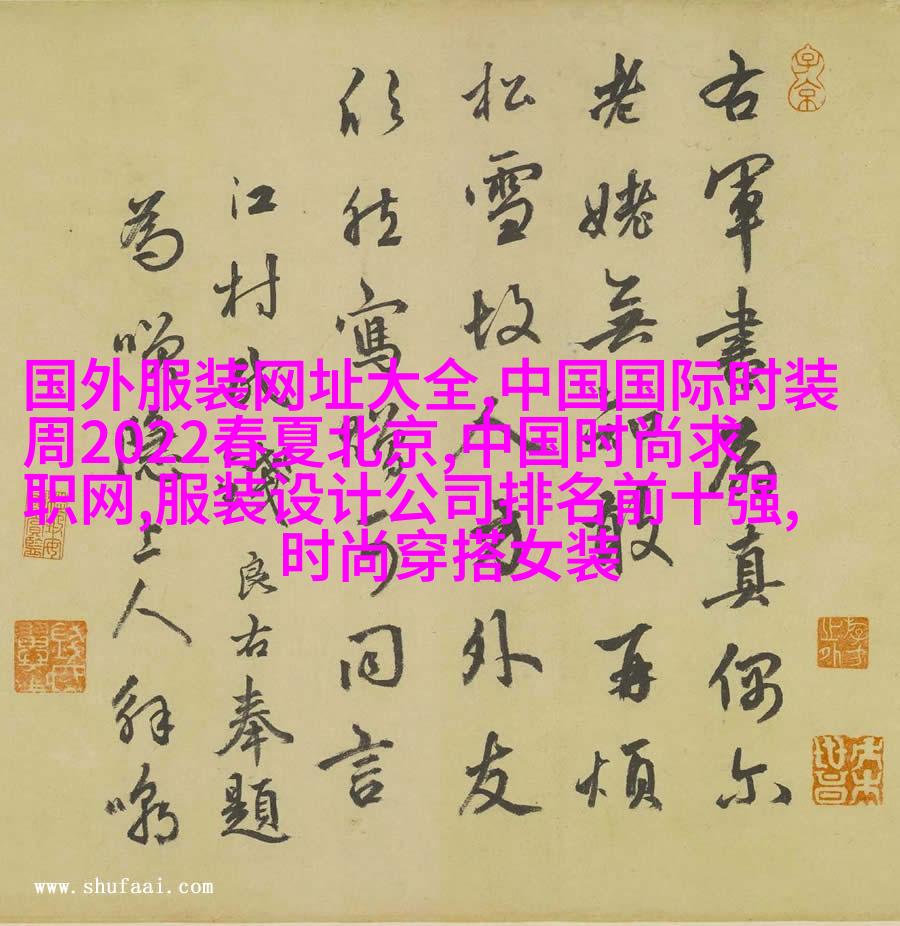 右軍書扇真偶尔
老姥無知敢再煩
松雪故人方外友
欣然寫贈可同言
江村民錢良右奉題
為隱上人解嘲
国外服装网址大全,中国国际时装
周2022春夏北京,中国时尚求
职网,服装设计公司排名前十强,
时尚穿搭女装
www.shufaai.com